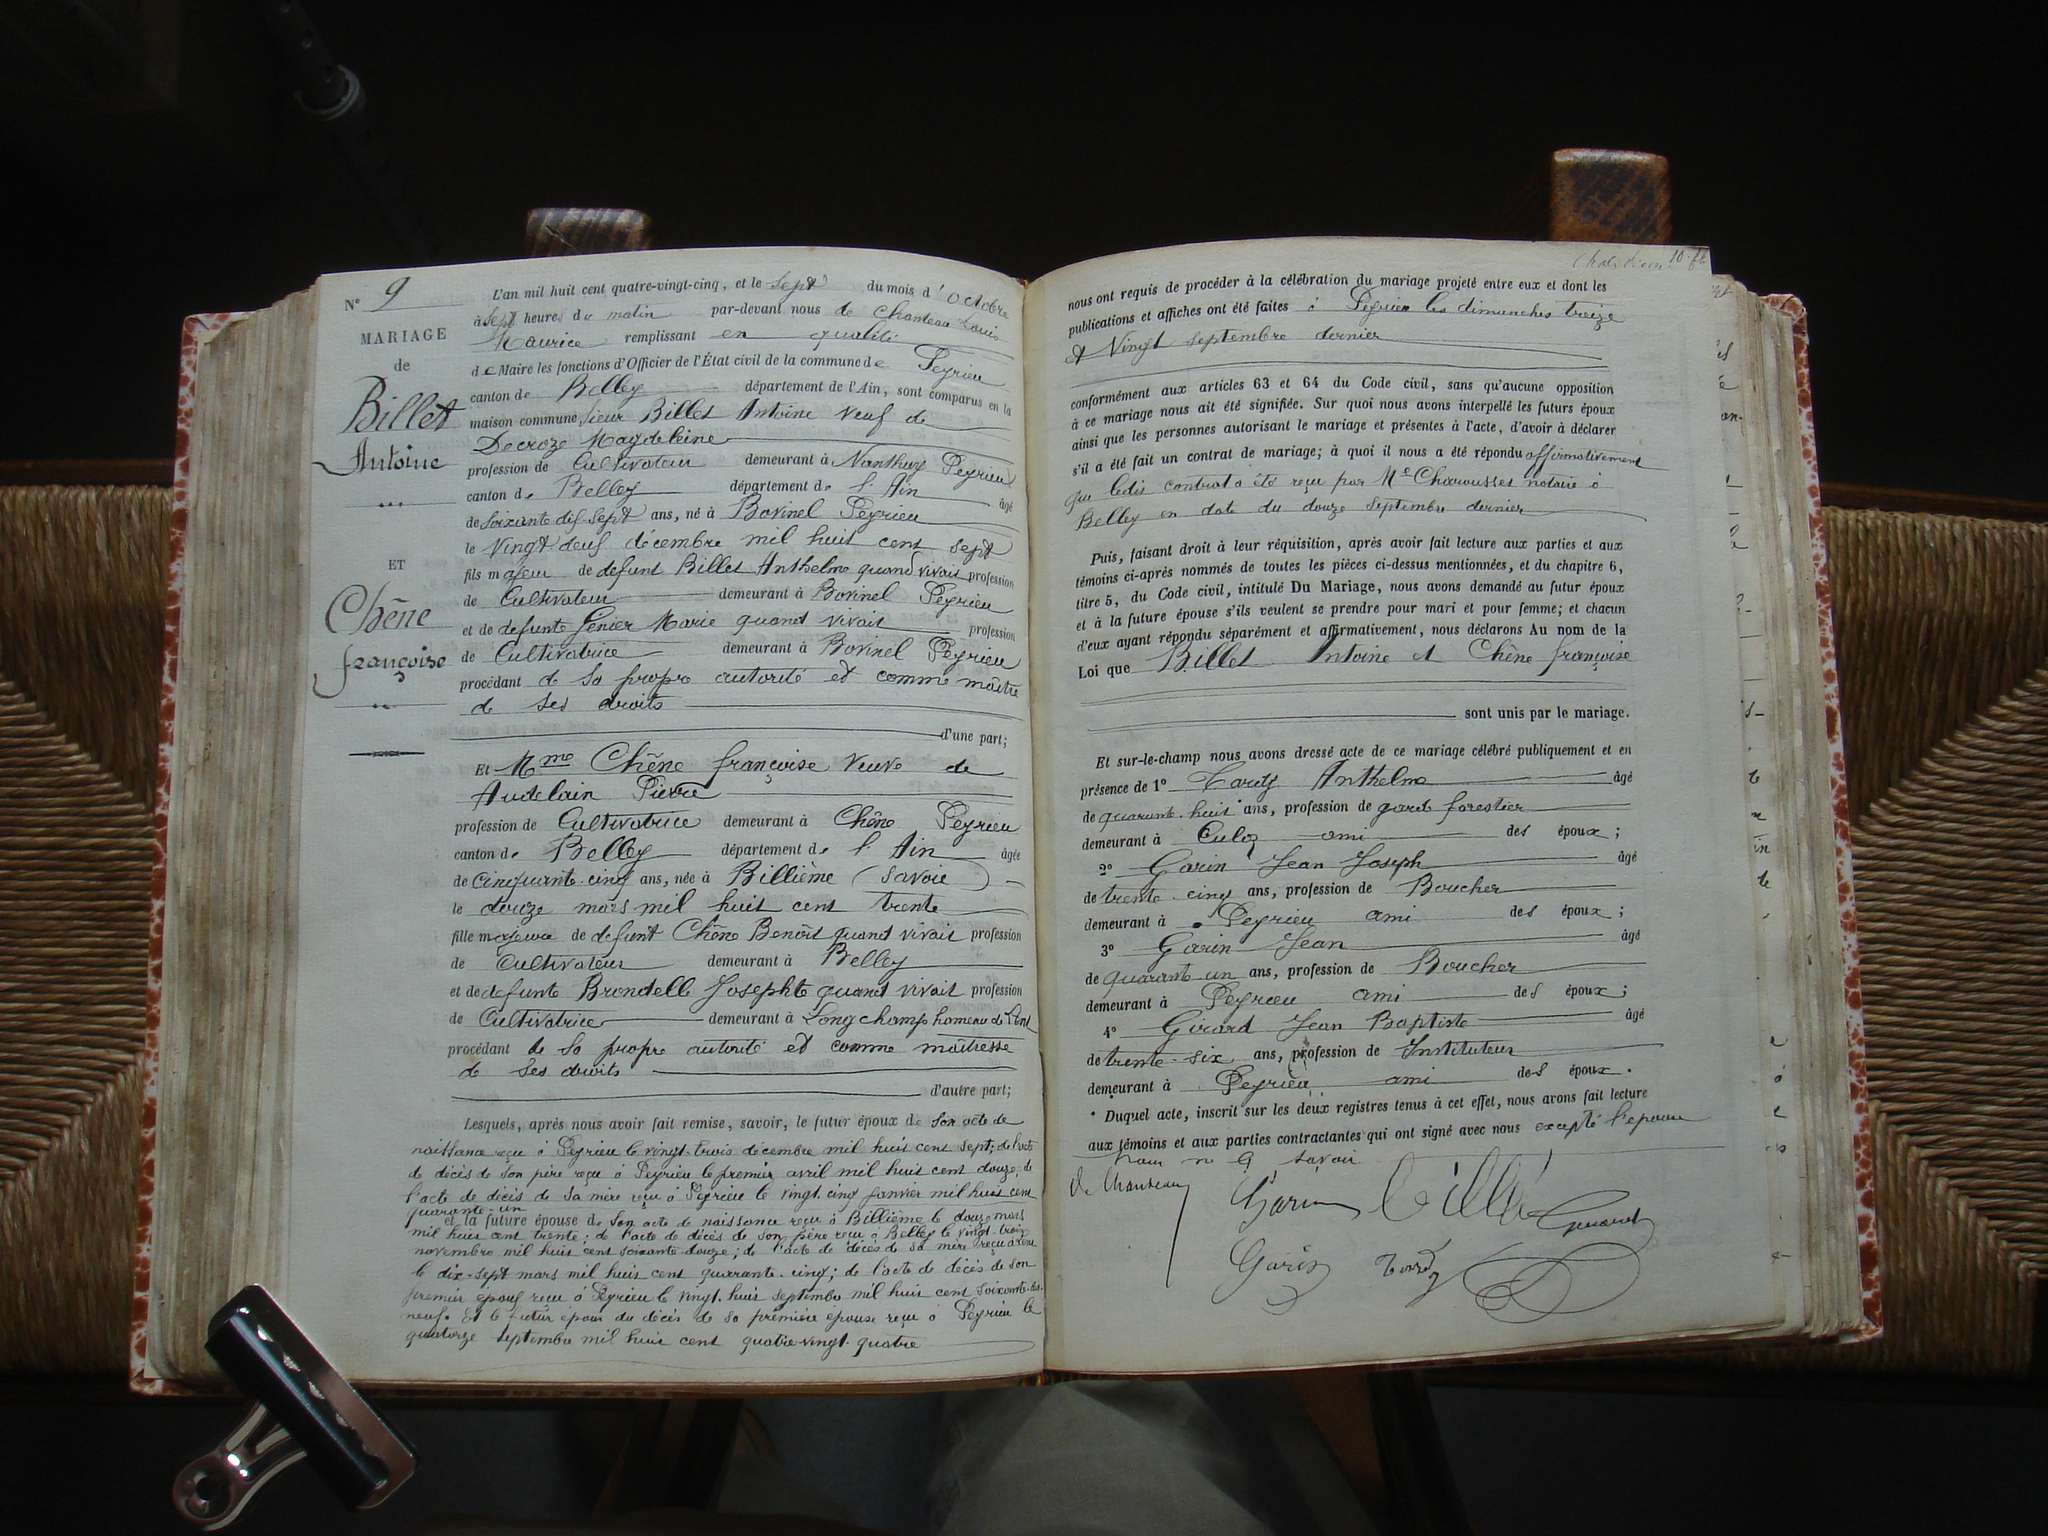 N° 9
MARIAGE
de
Billet
Antoine
ET
Chêne
françoise
L'an mil huit cent quatre-vingt-cinq, et le sept du mois d'octobre
à sept heures du matin par-devant nous de Chanteau Louis
Maurice remplissant en qualité
de Maire les fonctions d'Officier de l'État civil de la commune de Peyrieu
canton de Belley département de l'Ain, sont comparus en la
maison commune Sieur Billet Antoine Veuf de
Decroze Magdeleine
profession de Cultivateur demeurant à Nanthuy Peyrieu
canton de Belley département de l'Ain âgé
de soixante dix-sept ans, né à Bovinel Peyrieu
le Vingt deux décembre mil huit cent sept
fils majeur de defunt Billet Anthelme quand vivait profession
de Cultivateur demeurant à Bovinel Peyrieu
et de defunte Genier Marie quand vivait profession
de Cultivatrice demeurant à Bovinel Peyrieu
procédant de sa propre autorité et comme maître
de ses droits
d'une part;
Et Mme Chêne françoise Veuve de
Audelain Pierre
profession de Cultivatrice demeurant à Chêne Peyrieu
canton de Belley département de l'Ain âgée
de Cinquante-cinq ans, née à Billième (Savoie)
le douze mars mil huit cent trente
fille majeure de defunt Chêne Benoît quand vivait profession
de Cultivateur demeurant à Belley
et de defunte Brondelle Josephte quand vivait profession
de Cultivatrice demeurant à Longchamp hameau de
procédant de sa propre autorité et comme maîtresse
de ses droits
d'autre part;
Lesquels, après nous avoir fait remise, savoir, le futur époux de son acte de
naissance reçu à Peyrieu le vingt-trois décembre mil huit cent sept; de l'acte
de décès de son père reçu à Peyrieu le premier avril mil huit cent douze, de
l'acte de décès de sa mère reçu à Peyrieu le vingt cinq janvier mil huit cent
quarante-un
et la future épouse de son acte de naissance reçu à Billième le douze mars
mil huit cent trente; de l'acte de décès de son père reçu à Belley le vingt-trois
novembre mil huit cent soixante-douze; de l'acte de décès de sa mère reçu à
le dix-sept mars mil huit cent quarante-cinq; de l'acte de décès de son
premier époux reçu à Peyrieu le vingt-huit septembre mil huit cent soixante-dix-
neuf. Et le futur époux du décès de sa première épouse reçu à Peyrieu le
quatorze septembre mil huit cent quatre-vingt-quatre
nous ont requis de procéder à la célébration du mariage projeté entre eux et dont les
publications et affiches ont été faites à Peyrieu les dimanches treize
et Vingt septembre dernier
conformément aux articles 63 et 64 du Code civil, sans qu'aucune opposition
à ce mariage nous ait été signifiée. Sur quoi nous avons interpellé les futurs époux
ainsi que les personnes autorisant le mariage et présentes à l'acte, d'avoir à déclarer
s'il a été fait un contrat de mariage; à quoi il nous a été répondu affirmativement
que ledit contrat a été reçu par Me Charousset notaire à
Belley en date du douze septembre dernier
Puis, faisant droit à leur réquisition, après avoir fait lecture aux parties et aux
témoins ci-après nommés de toutes les pièces ci-dessus mentionnées, et du chapitre 6,
titre 5, du Code civil, intitulé Du Mariage, nous avons demandé au futur époux
et à la future épouse s'ils veulent se prendre pour mari et pour femme; et chacun
d'eux ayant répondu séparément et affirmativement, nous déclarons Au nom de la
Loi que Billet Antoine et Chêne françoise
sont unis par le mariage.
Et sur-le-champ nous avons dressé acte de ce mariage célébré publiquement et en
présence de 1° Anthelme âgé
de quarante-huit ans, profession de garde forestier
demeurant à Culoz ami des époux;
2° Garin Jean Joseph âgé
de trente-cinq ans, profession de Boucher
demeurant à Peyrieu ami des époux;
3° Garin Jean âgé
de quarante-un ans, profession de Boucher
demeurant à Peyrieu ami des époux;
4° Girard Jean Baptiste âgé
de trente-six ans, profession de Instituteur
demeurant à Peyrieu ami des époux.
Duquel acte, inscrit sur les deux registres tenus à cet effet, nous avons fait lecture
aux témoins et aux parties contractantes qui ont signé avec nous excepté l'épouse
pour ne savoir
de Chanteau Garin Billet Girard
Garin